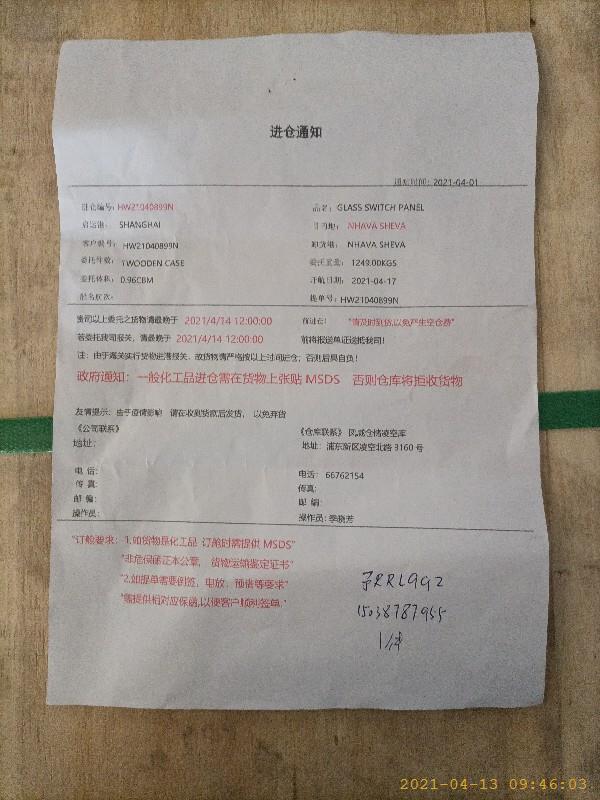 进仓通知
通知时间: 2021-04-01
进仓编号: HW21040899N 品名: GLASS SWITCH PANEL
启运港: SHANGHAI 目的地: NHAVA SHEVA
客户编号: HW21040899N 卸货港: NHAVA SHEVA
委托件数: 1WOODEN CASE 委托重量: 1249.00KGS
委托体积: 0.96CBM 开航日期: 2021-04-17
船名航次: 提单号: HW21040899N
贵司以上委托之货物请最晚于 2021/4/14 12:00:00 前进仓! "请及时到货,以免产生空仓费"
若委托我司报关, 请最晚于 2021/4/14 12:00:00 前将报送单证送抵我司!
注: 由于海关实行货物进港报关, 故货物请严格按以上时间进仓; 否则后果自负!
政府通知: 一般化工品进仓需在货物上张贴 MSDS 否则仓库将拒收货物
友情提示: 由于疫情影响 请在收到货款后发货, 以免弃货
《公司联系》 《仓库联系》 凤城仓储凌空库
地址: 地址: 浦东新区凌空北路 3160 号
电 话: 电话: 66762154
传 真: 传真:
邮 编: 邮 编:
操作员: 操作员: 季晓芳
"订舱要求: 1.如货物是化工品 订舱时需提供 MSDS"
"非危保函正本公章, 货物运输鉴定证书"
"2.如提单需要倒签, 电放, 预借等要求"
"需提供相对应保函,以便客户顺利签单."
RRL992
15038787955
1件
2021-04-13 09:46:03